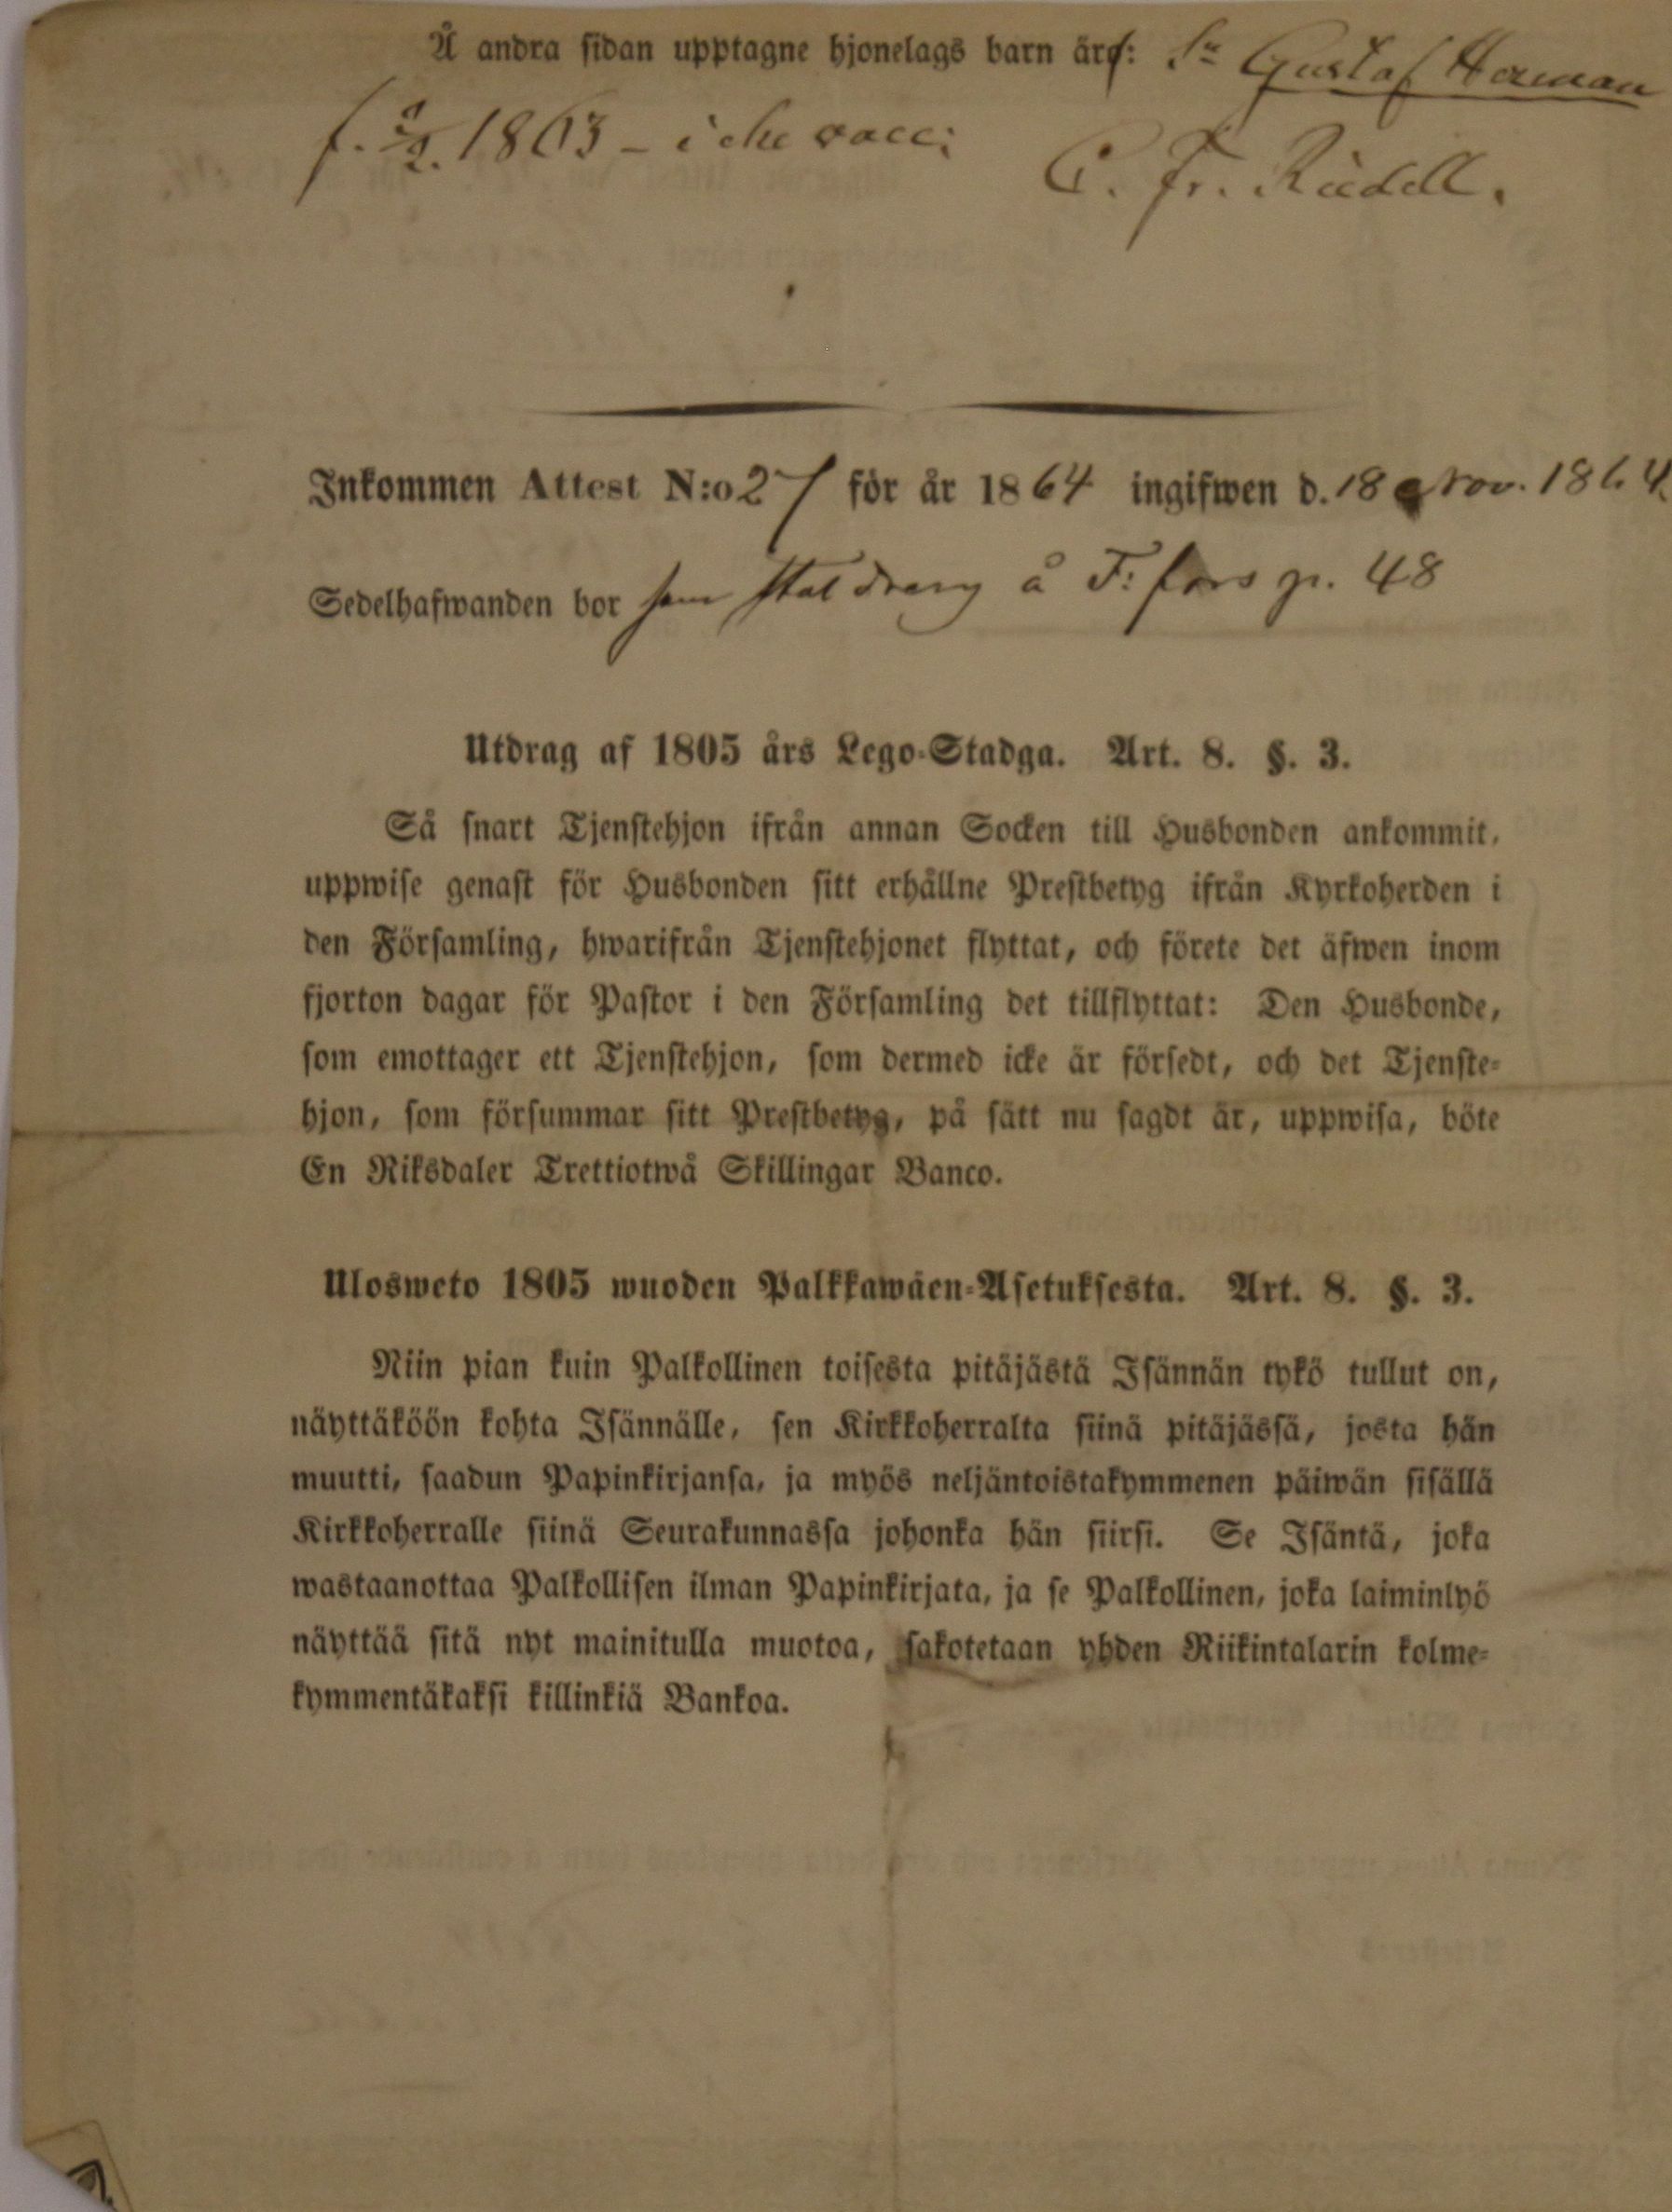 Å andra sidan upptagne hjonelags barn är: Sn Gustaf Herman
f. 2/2. 1863 – icke vacc:
C. Fr. Rüdell.
Inkommen Attest N:o 27 för år 1864 ingifwen d. 18 Nov. 1864.
Sedelhafwanden bor som Statdräng å F:fors p. 48
Utdrag af 1805 års Lego-Stadga. Art. 8. §. 3.
Så snart Tjenstehjon ifrån annan Socken till Husbonden ankommit,
uppwise genast för Husbonden sitt erhållne Prestbetyg ifrån Kyrkoherden i
den Församling, hwarifrån Tjenstehjonet flyttat, och förete det äfwen inom
fjorton dagar för Pastor i den Församling det tillflyttat: Den Husbonde,
som emottager ett Tjenstehjon, som dermed icke är försedt, och det Tjenste-
hjon, som försummar sitt Prestbetyg, på sätt nu sagdt är, uppwisa, böte
En Riksdaler Trettiotwå Skillingar Banco.
Ulosweto 1805 wuoden Palkkawäen-Asetuksesta. Art. 8. §. 3.
Niin pian kuin Palkollinen toisesta pitäjästä Isännän tykö tullut on,
näyttäköön kohta Isännälle, sen Kirkkoherralta siinä pitäjässä, josta hän
muutti, saadun Papinkirjansa, ja myös neljäntoistakymmenen päiwän sisällä
Kirkkoherralle siinä Seurakunnassa johonka hän siirsi. Se Isäntä, joka
wastaanottaa Palkollisen ilman Papinkirjata, ja se Palkollinen, joka laiminlyö
näyttää sitä nyt mainitulla muotoa, sakotetaan yhden Riikintalarin kolme-
kymmentäkaksi killinkiä Bankoa.